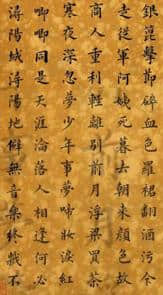 銀篦擊節碎血色羅裙翻酒污今
走從軍阿姨死暮去朝來顏色故
商人重利輕離別前月浮梁買茶
寒夜深忽夢少年事夢啼妝淚紅
唧唧同是天涯淪落人相逢何必
潯陽城潯陽地僻無音樂終歲不